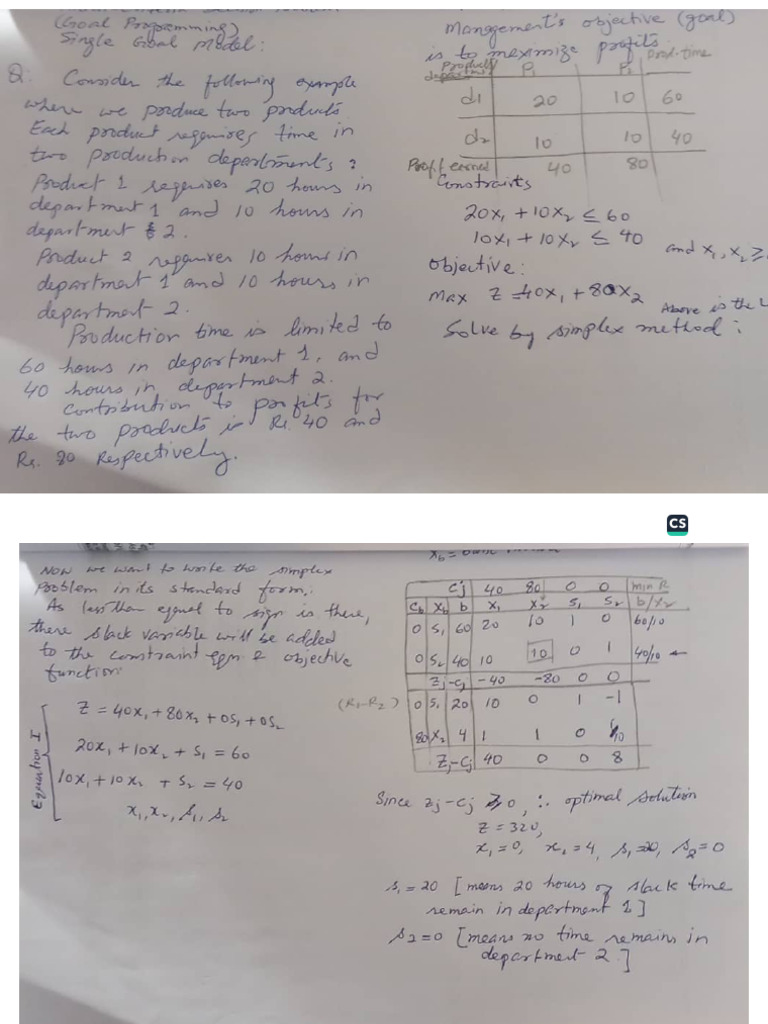 (Goal Programming)
Single Goal Model:
Q: Consider the following example
where we produce two products.
Each product requires time in
two production departments:
Product 1 requires 20 hours in
department 1 and 10 hours in
department 2.
Product 2 requires 10 hours in
department 1 and 10 hours in
department 2.
Production time is limited to
60 hours in department 1, and
40 hours in department 2.
Contribution to profits for
the two products is Rs. 40 and
Rs. 80 Respectively.
Management's objective (goal)
is to maximize profits
Product P1 P2 Prod. time
d1 20 10 60
d2 10 10 40
Profit earned 40 80
Constraints
20x1 + 10x2 ≤ 60
10x1 + 10x2 ≤ 40 and x1, x2 ≥
Objective:
Max Z = 40x1 + 80x2
Above is the
Solve by simplex method:
CS
Now we want to write the simplex
problem in its standard form.
As less than equal to sign is there,
there slack variable will be added
to the constraint eqn & objective
function.
Equation I
Z = 40x1 + 80x2 + 0s1 + 0s2
20x1 + 10x2 + s1 = 60
10x1 + 10x2 + s2 = 40
x1, x2, s1, s2
Cj 40 80 0 0 min R
Cb Xb b x1 x2 s1 s2 b/x2
0 s1 60 20 10 1 0 60/10
0 s2 40 10 10 0 1 40/10 ←
Zj-Cj -40 -80 0 0
(R1-R2) 0 s1 20 10 0 1 -1
80 x2 4 1 1 0 1/10
Zj-Cj 40 0 0 8
Since Zj-Cj ≥ 0, ∴ optimal solution
Z = 320,
x1 = 0, x2 = 4, s1 = 20, s2 = 0
s1 = 20 [means 20 hours of slack time
remain in department 1]
s2 = 0 [means no time remains in
department 2.]